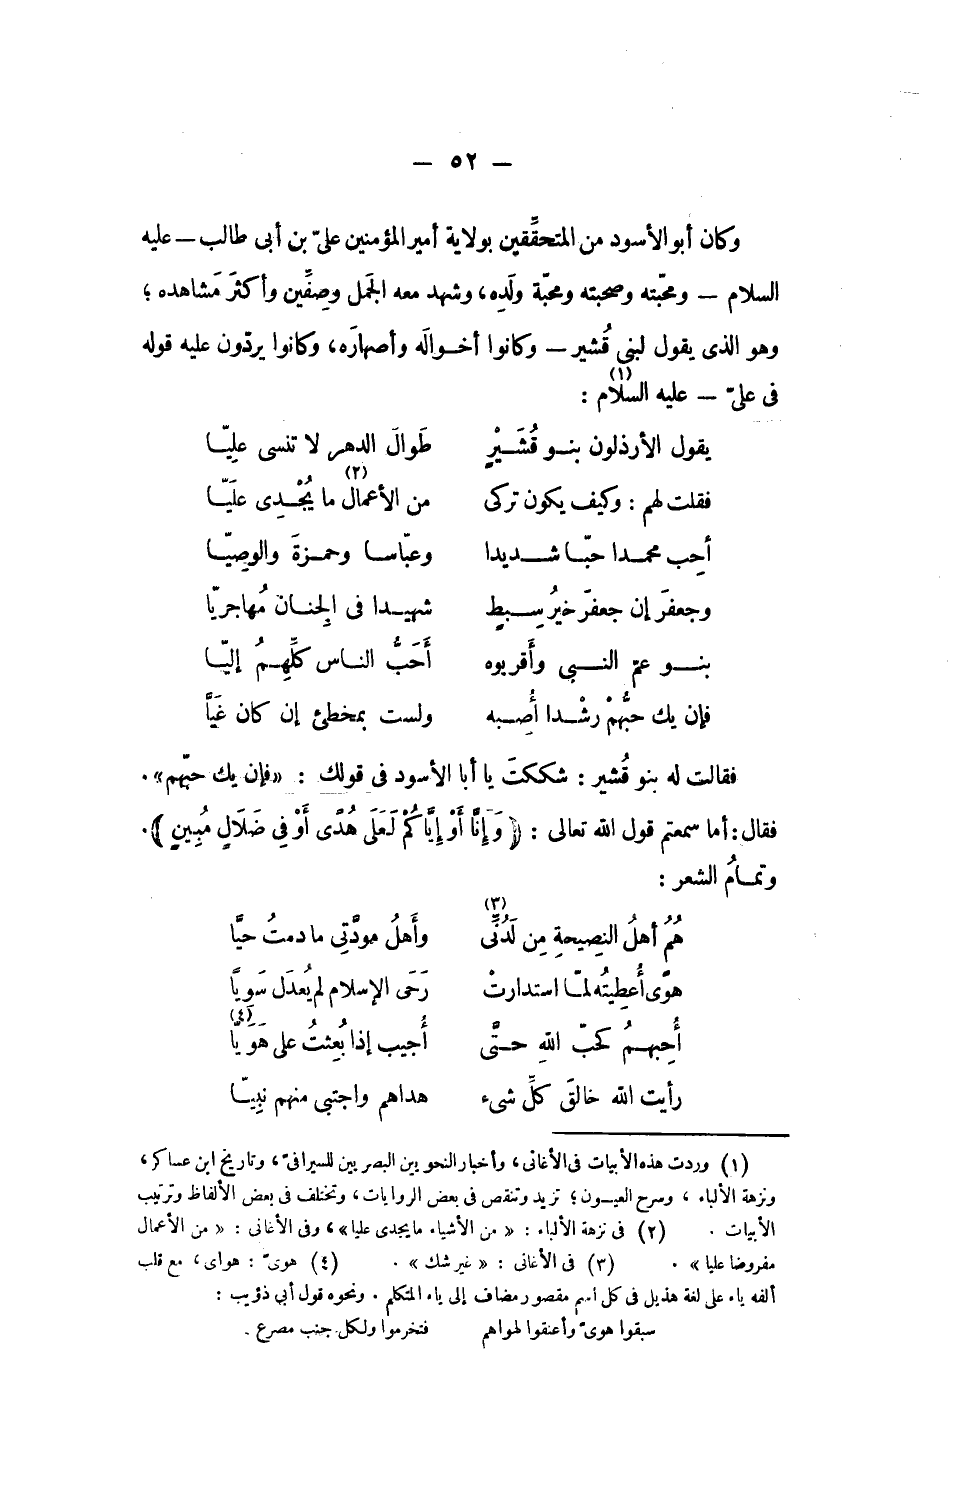 — ٥٢ —
وكان أبو الأسود من المتحقِّقين بولاية أمير المؤمنين علىّ بن أبى طالب — عليه
السلام — ومحبّته وصحبته ومحبّة ولَدِه، وشهد معه الجَمل وصِفِّين وأكثرَ مَشاهده؛
وهو الذى يقول لبنى قُشير — وكانوا أخوالَه وأصهارَه، وكانوا يردّون عليه قوله
فى علىّ — عليه السلام (١) :
يقول الأرذلون بنو قُشَيْرٍ طَوالَ الدهر لا تنسى عليّا
فقلت لهم : وكيف يكون تركى من الأعمال ما يُجْدِى علَيّا (٢)
أحِب محمدا حبّا شديدا وعبّاسا وحمزةَ والوصِيّا
وجعفرَ إن جعفرَ خيرُ سِبطٍ شهيدا فى الجِنان مُهاجريّا
بنو عمّ النبى وأَقربوه أَحَبُّ الناس كلِّهِمُ إليّا
فإن يك حبُّهمْ رشْدا أُصِبه ولست بمخطئ إن كان غَيًّا
فقالت له بنو قُشير : شككتَ يا أبا الأسود فى قولك : «فإن يك حبّهم».
فقال: أما سمعتم قول الله تعالى : ﴿ وَإِنَّا أَوْ إِيَّاكُمْ لَعَلَى هُدًى أَوْ فِى ضَلَالٍ مُبِينٍ ﴾.
وتمامُ الشعر :
هُمُ أهلُ النصِيحةِ مِن لَدُنِّى (٣) وأَهلُ مودَّتِى ما دمتُ حيَّا
هوًى أُعطِيتُه لمّا استدارتْ رَحَى الإسلام لم يُعدَل سَويَّا
أُحِبهمُ كحُبّ اللهِ حتَّى أُجيب إذا بُعثتُ على هَوَيَّا (٤)
رأيت الله خالقَ كلِّ شىء هداهم واجتبى منهم نبِيّا
(١) وردت هذه الأبيات فى الأغانى، وأخبار النحويين البصريين للسيرافىّ، وتاريخ ابن عساكر،
ونزهة الألباء ، وسرح العيون؛ تزيد وتنقص فى بعض الروايات، وتختلف فى بعض الألفاظ وترتيب
الأبيات . (٢) فى نزهة الألباء : « من الأشياء ما يجدى عليا»، وفى الأغانى : « من الأعمال
مفروضا عليا » . (٣) فى الأغانى : « غير شك » . (٤) هوىّ : هواى، مع قلب
ألفه ياء على لغة هذيل فى كل اسم مقصور مضاف إلى ياء المتكلم . ونحوه قول أبي ذؤيب :
سبقوا هوىّ وأعنقوا لهواهم فتخرموا ولكل جنب مصرع .